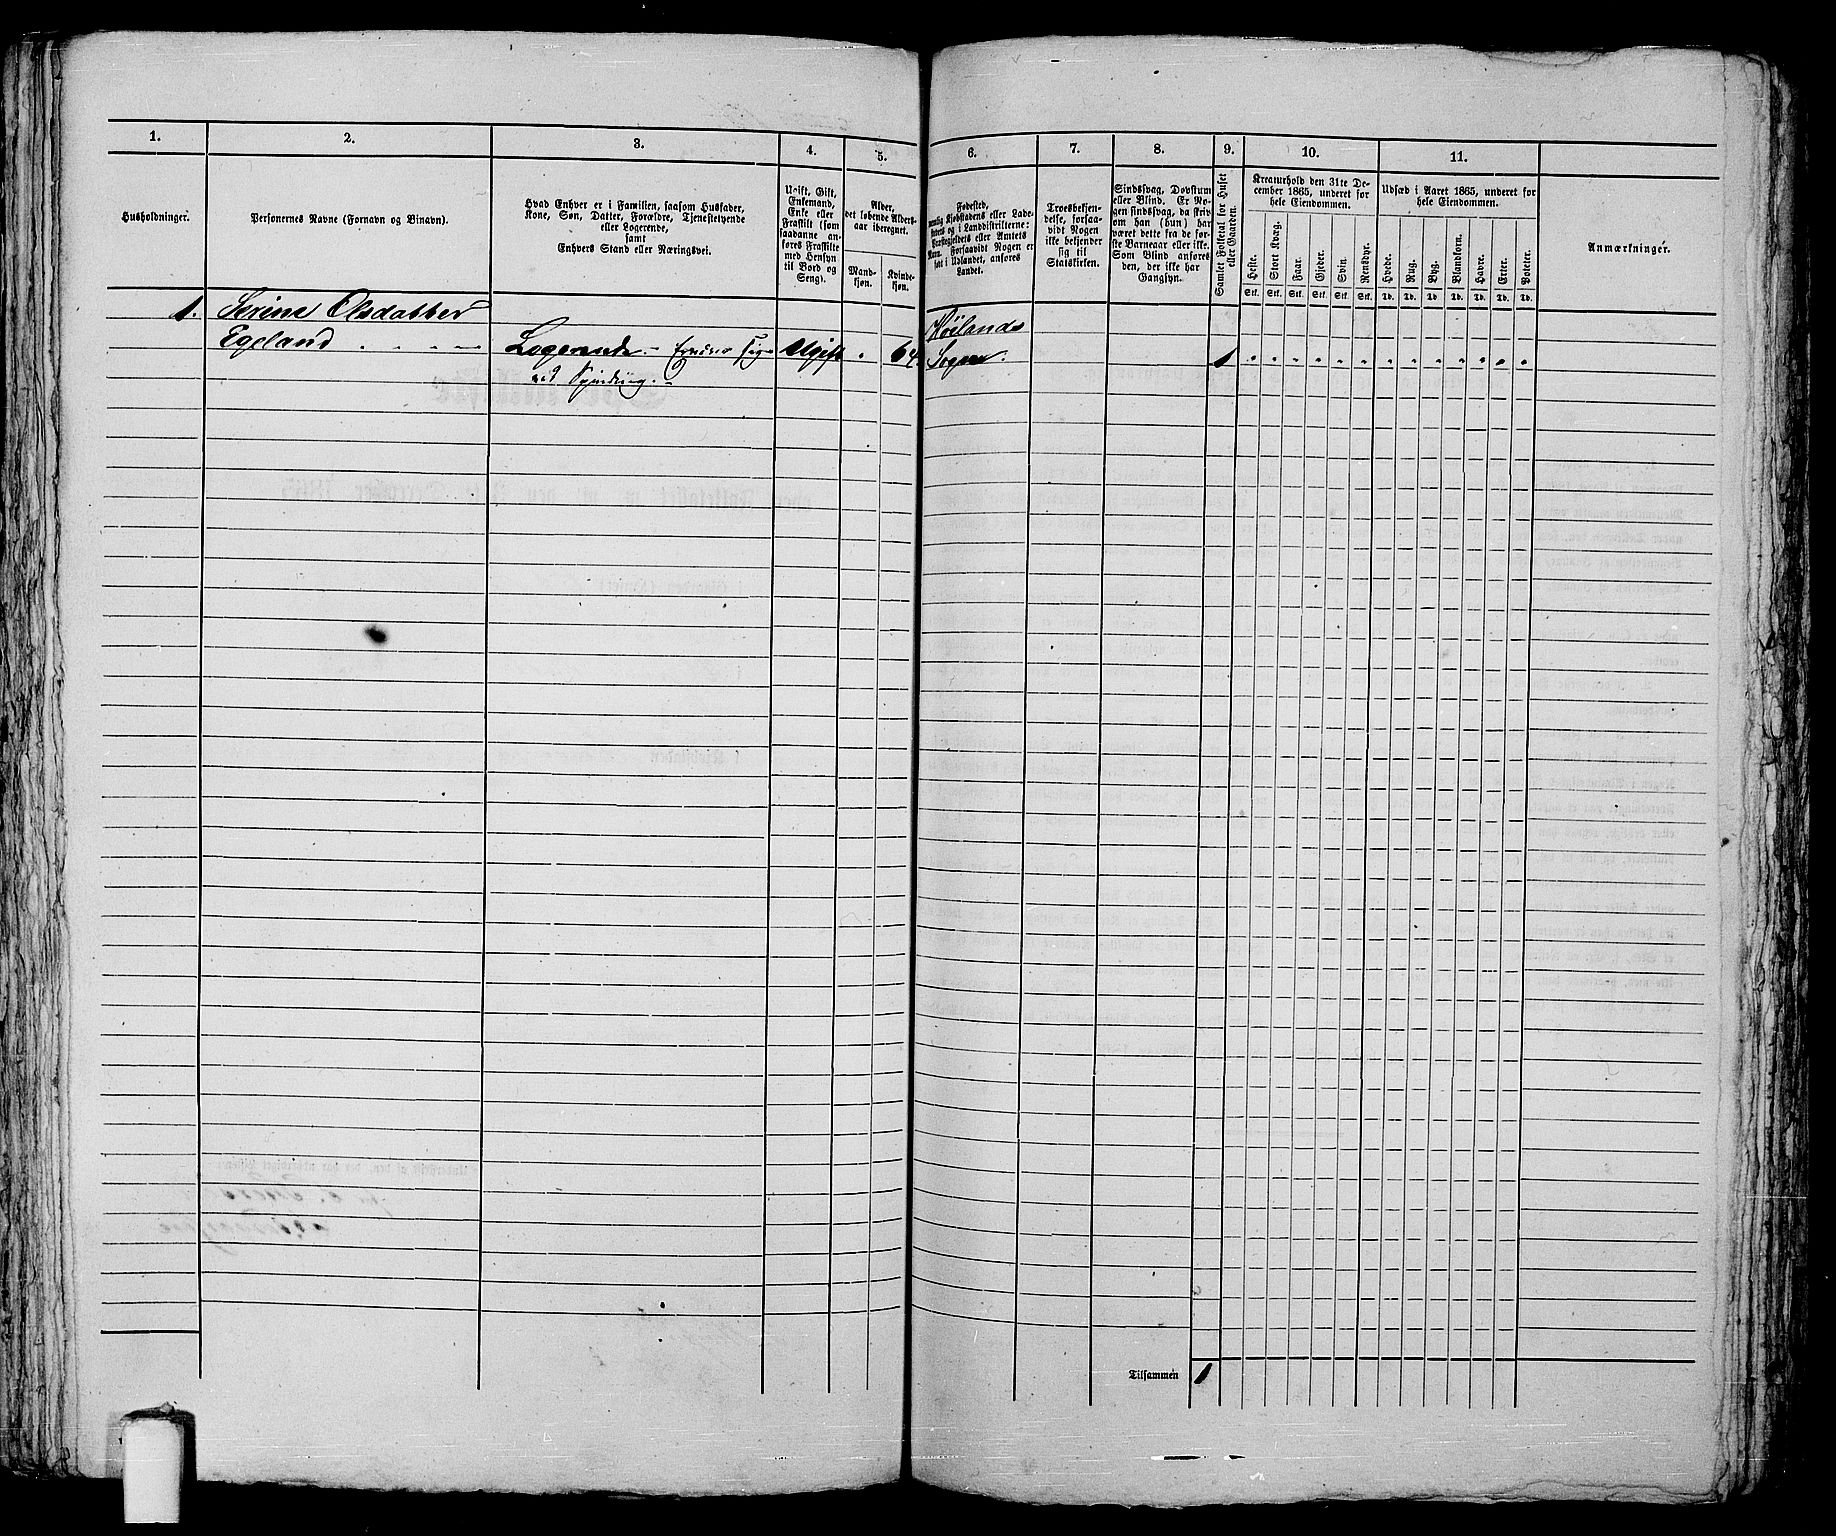 1. 2. 3. 4. 5. 6. 7. 8. 9. 10. 11.
Husholdninger.
Personernes Navne (Fornavn og Binavn).
Hvad Enhver er i Familien, saasom Husfader,
Kone, Søn, Datter, Forældre, Tjenestetyende
eller Logerende,
samt
Enhvers Stand eller Næringsvei.
Ugift, Gift,
Enkemand,
Enke eller
Fraskilt (som
saadanne an-
føres Fraskilte
med Hensyn
til Bord og
Seng).
Alder,
det løbende Alders-
aar iberegnet.
Mand-
kjøn.
Kvinde-
kjøn.
Fødested,
nemlig Kjøbstadens eller Lade-
stedets og i Landdistrikterne:
Præstegjeldets eller Amtets
Navn. Forsaavidt Nogen er
født i Udlandet, anføres
Landet.
Troesbekjen-
delse, forsaa-
vidt Nogen
ikke bekjender
sig til
Statskirken.
Sindssvag, Døvstum
eller Blind. Er No-
gen sindssvag, da skriv
om han (hun) har
været dette fra de før-
ste Barneaar eller ikke.
Som Blind anføres
den, der ikke har
Gangsyn.
Samlet Folketal for Huset
eller Gaarden.
Kreaturhold den 31te De-
cember 1865, underet for
hele Eiendommen.
Heste.
Stort Kvæg.
Faar.
Gjeder.
Svin.
Rensdyr.
Stk. Stk. Stk. Stk. Stk. Stk.
Udsæd i Aaret 1865, underet for
hele Eiendommen.
Hvede.
Rug.
Byg.
Blandkorn.
Havre.
Erter.
Poteter.
Td. Td. Td. Td. Td. Td. Td.
Anmærkninger.
1. Serine Olsdatter
Egeland
Logerende. Ernærer sig Ugift 64
ved Spinding.
Høilands
Sogn. 1
Tilsammen 1